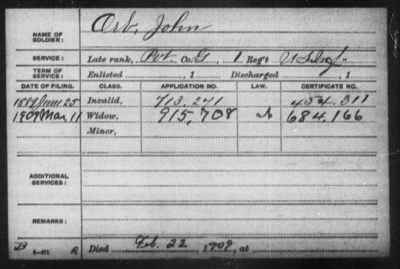 NAME OF SOLDIER: Orb, John
SERVICE: Late rank, Pvt. Co. G, 1 Reg't U.S. Inf.
TERM OF SERVICE: Enlisted , 1 Discharged , 1
DATE OF FILING. CLASS. APPLICATION NO. LAW. CERTIFICATE NO.
1889 June 25 Invalid, 713.241 454.311
1909 Mar 11 Widow, 915,708 684.166
Minor,
ADDITIONAL SERVICES:
REMARKS:
Died Feb. 22, 1909, at